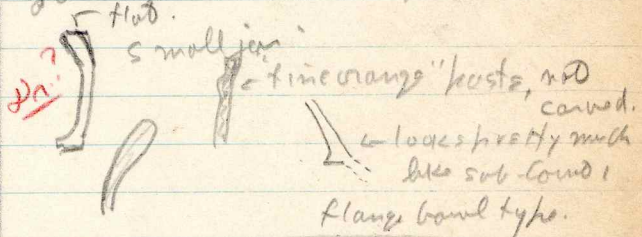 flat.
small jar.
Dr?
"fine orange" paste, not
carved.
looks pretty much
like sub-
flange bowl type.